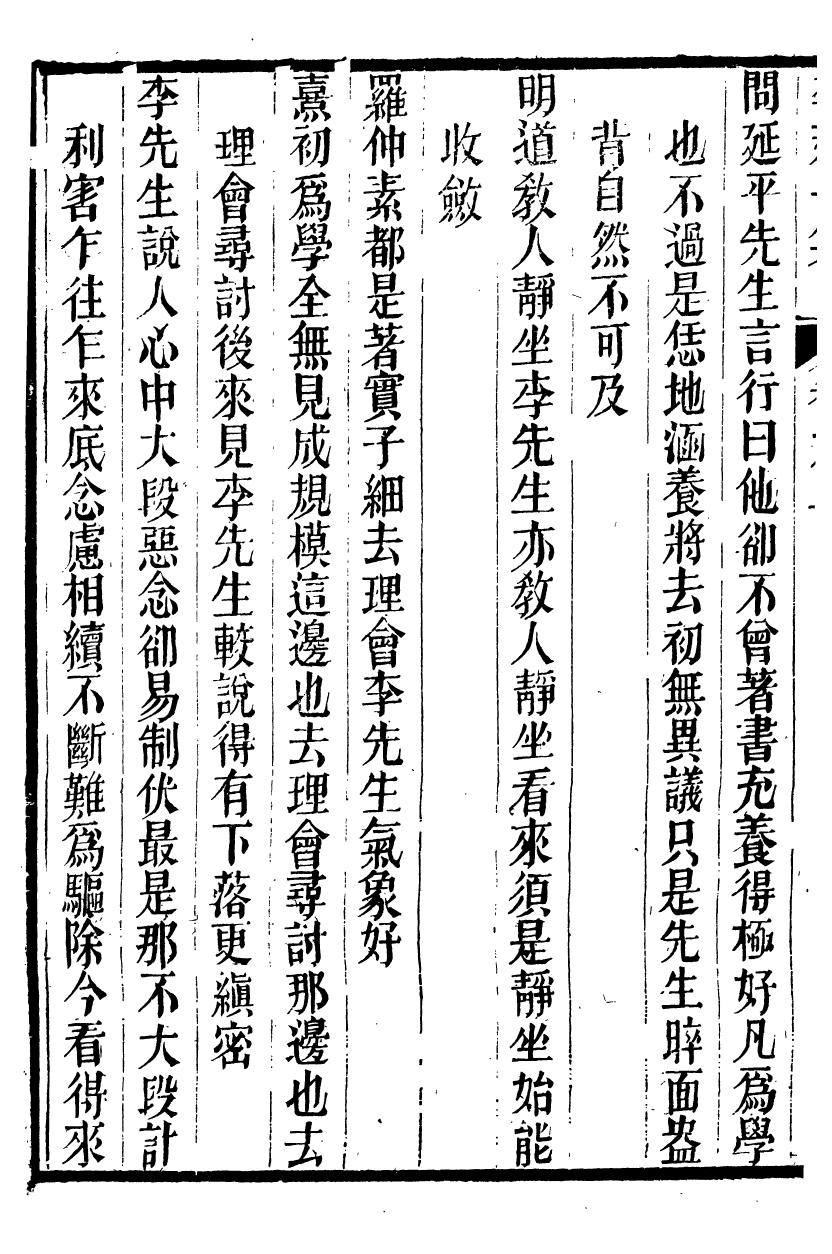 問延平先生言行曰他卻不曾著書充養得極好凡爲學
也不過是恁地涵養將去初無異議只是先生睟面盎
背自然不可及
明道敎人靜坐李先生亦敎人靜坐看來須是靜坐始能
收斂
羅仲素都是著實子細去理會李先生氣象好
熹初爲學全無見成規模這邊也去理會尋討那邊也去
理會尋討後來見李先生較說得有下落更縝密
李先生說人心中大段惡念卻易制伏最是那不大段計
利害乍往乍來底念慮相續不斷難爲驅除今看得來